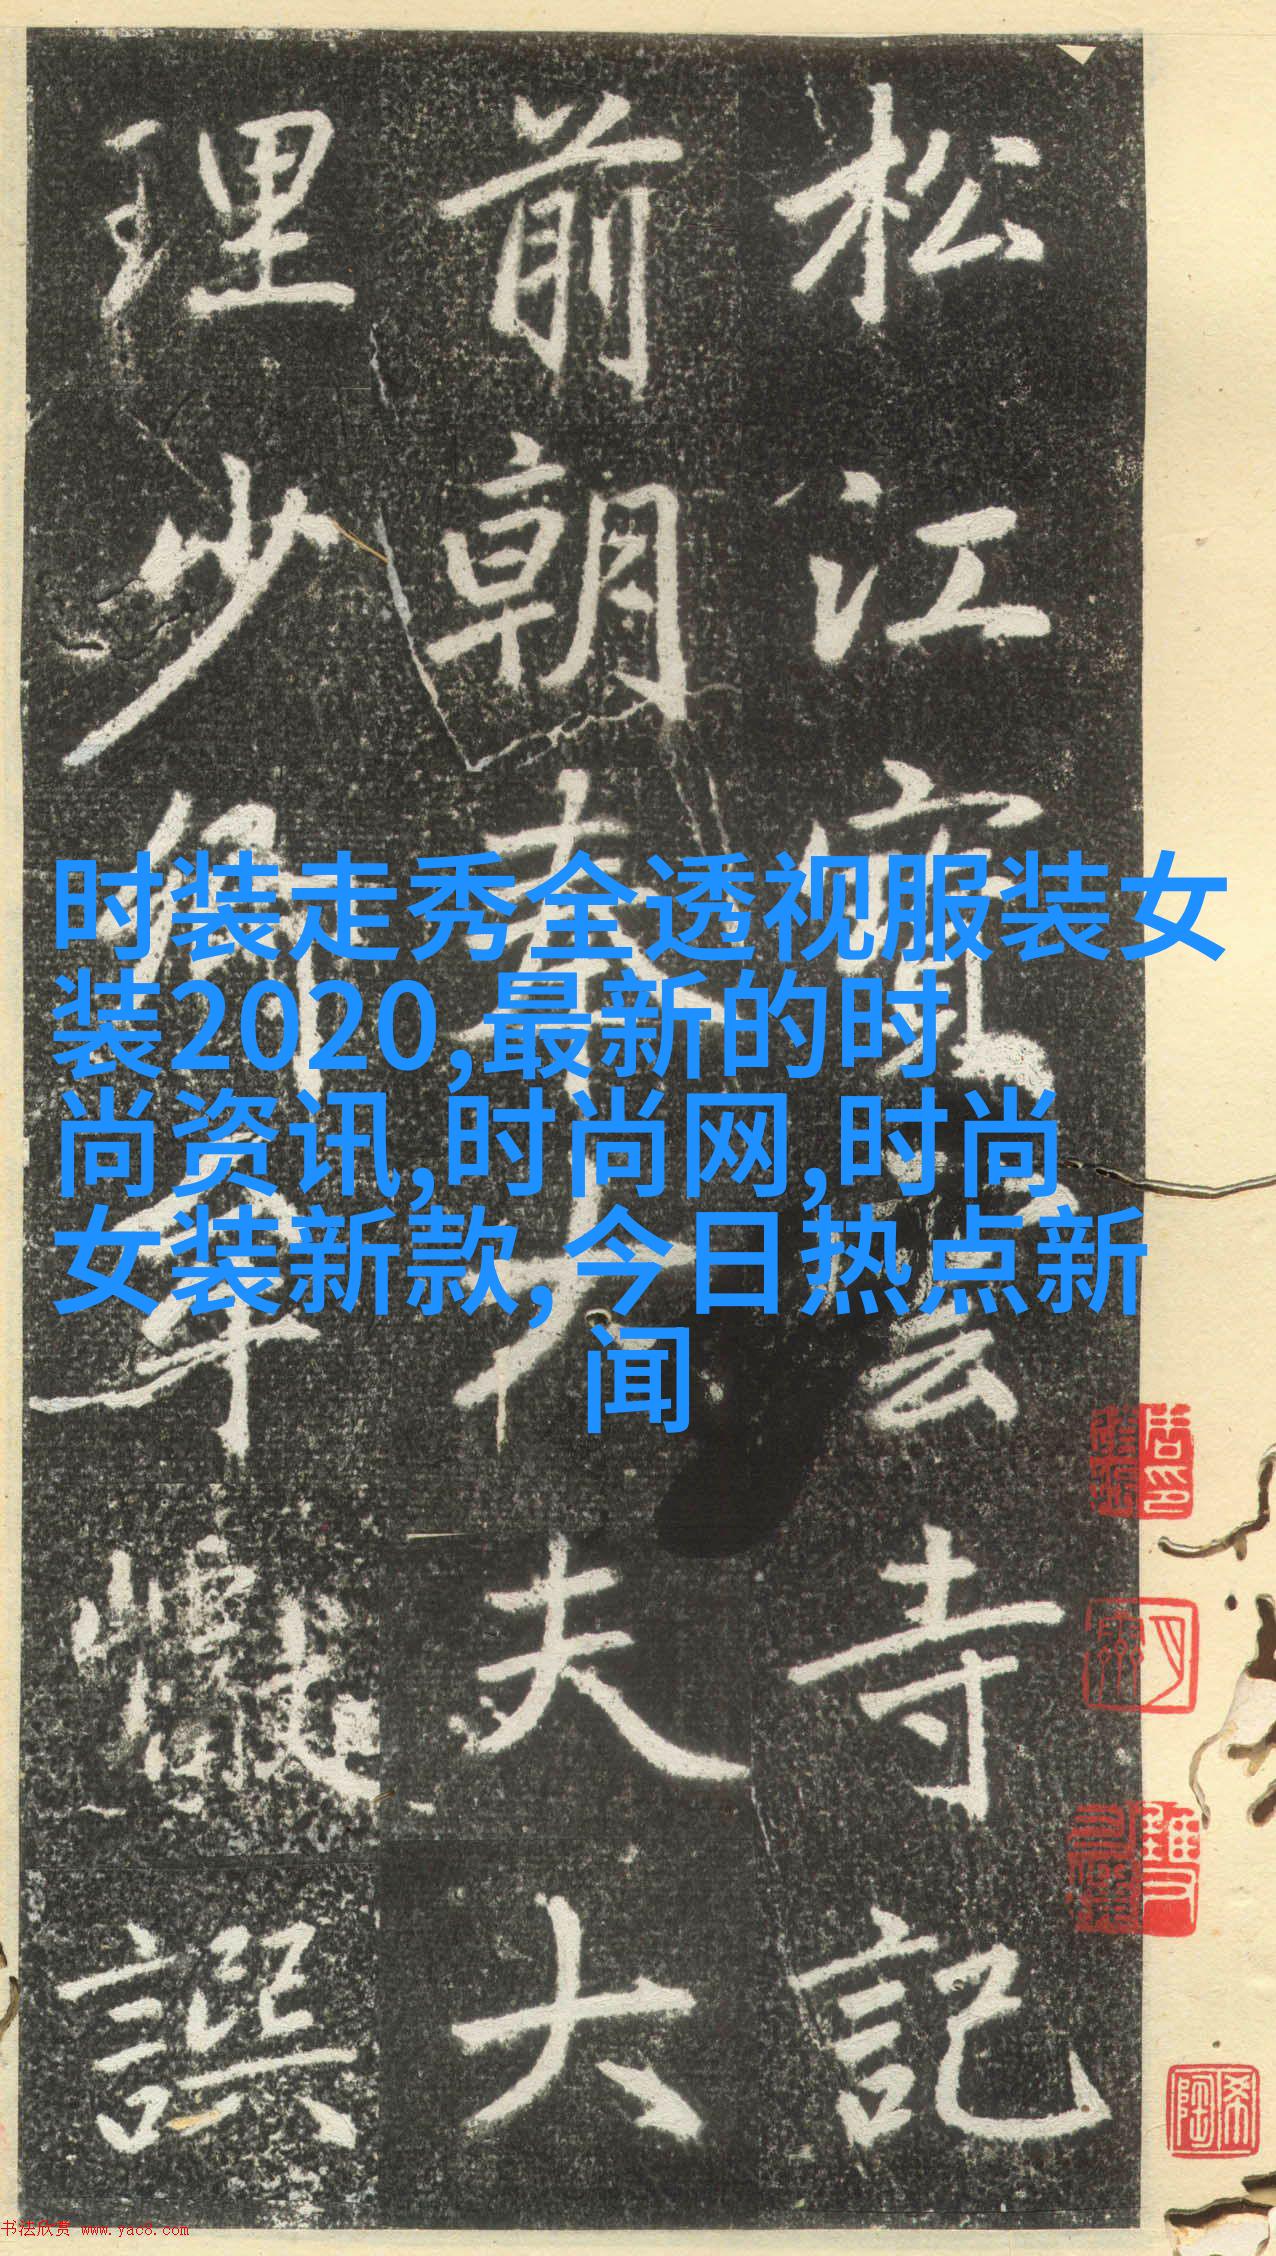 松江寳雲寺記
前朝奉大夫大
理少卿牟巘譔
时装走秀全透视服装女
装2020,最新的时
尚资讯,时尚网,时尚
女装新款, 今日热点新
闻
书法欣赏 www.yac8.com